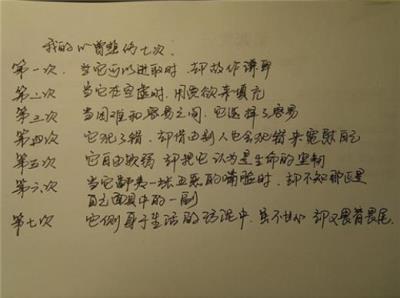 我的心曾悲伤七次.
第一次. 当它可以进取时,却故作谦卑
第二次 当它在空虚时,用爱欲来填充
第三次 当困难和容易之间,它选择了容易
第四次 它犯了错,却借由别人也会犯错来宽慰自己
第五次 它自由软弱 却把它认为是生命的坚韧
第六次 当它鄙夷一张丑恶的嘴脸时,却不知那正是
自己面具中的一副
第七次 它侧身于生活的污泥中,虽不甘心 却又畏首畏尾.